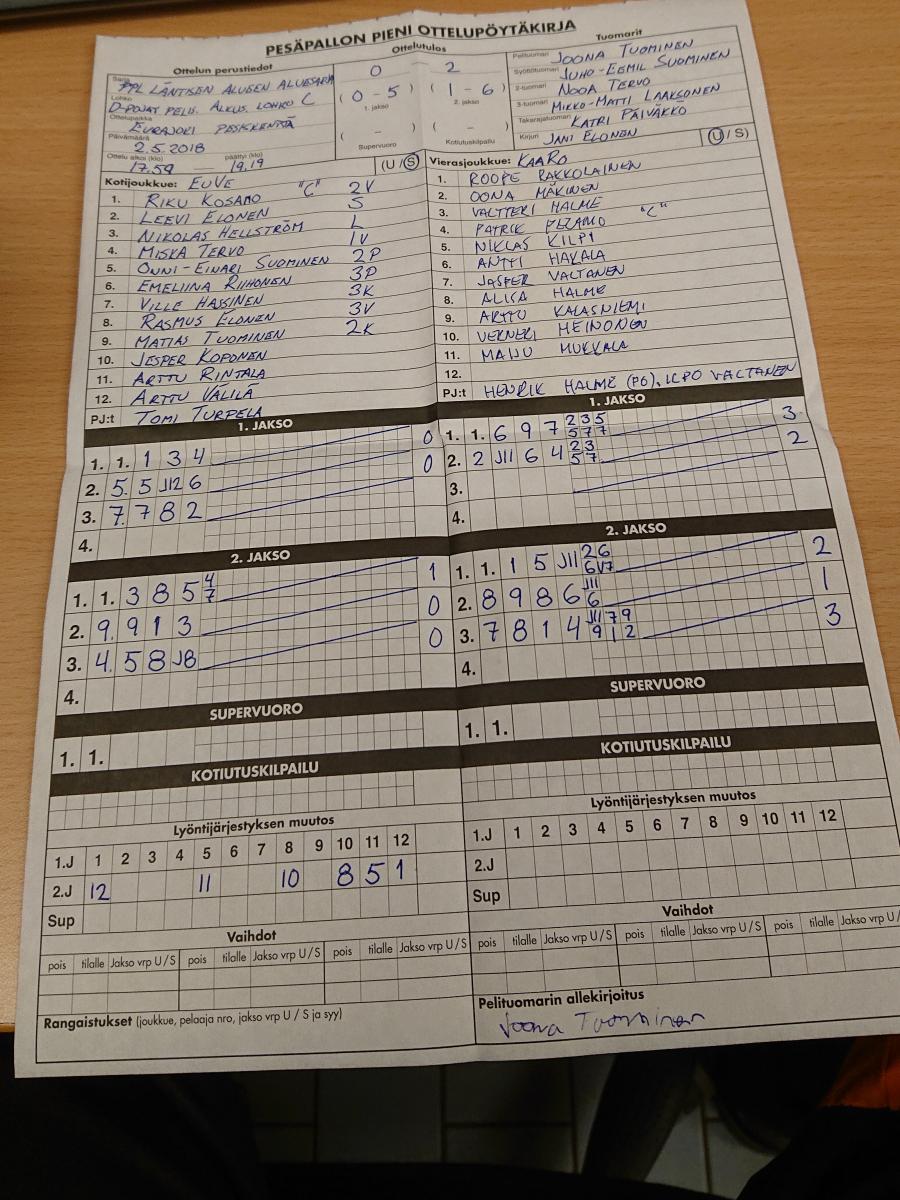 PESÄPALLON PIENI OTTELUPÖYTÄKIRJA
Ottelun perustiedot
Ottelutulos
Tuomarit
Sarja
PPL LÄNTISEN ALUEEN ALUESARJA
Lohko
D-POJAT PELIS. ALKUS. LOHKO C
Ottelupaikka
EURAJOKI PESISKENTTÄ
Päivämäärä
2.5.2018
Ottelu alkoi (klo)
päättyi (klo)
17.59 – 19.19
0 2
( 0 - 5 ) ( 1 - 6 )
1. jakso 2. jakso
( – ) ( – )
Supervuoro Kotiutuskilpailu
Pelituomari JOONA TUOMINEN
Syöttötuomari JUHO-EEMIL SUOMINEN
2-tuomari NOOA TERVO
3-tuomari MIKKO-MATTI LAAKSONEN
Takarajatuomari KATRI PÄIVÄKKÖ
Kirjuri JANI ELONEN
Kotijoukkue: EUVE (U / S)
1. RIKU KOSAMO "C" 2V
2. LEEVI ELONEN S
3. NIKOLAS HELLSTRÖM L
4. MISKA TERVO 1V
5. ONNI-EINARI SUOMINEN 2P
6. EMELIINA RIIHONEN 3P
7. VILLE HASSINEN 3K
8. RASMUS ELONEN 3V
9. MATIAS TUOMINEN 2K
10. JESPER KOPONEN
11. ARTTU RINTALA
12. ARTTU VÄLILÄ
PJ:t TOMI TURPELA
Vierasjoukkue: KAARO (U / S)
1. ROOPE PAKKOLAINEN
2. OONA MÄKINEN
3. VALTTERI HALME
4. PATRIK "C"
5. NIKLAS KILPI
6. ANTTI HAKALA
7. JASPER VALTANEN
8. ALISA HALME
9. ARTTU KALASNIEMI
10. VERNERI HEINONEN
11. MAIJU MUKKALA
12.
PJ:t HENRIK HALME (PÖ), ILPO VALTANEN
1. JAKSO
1. 1. 1 3 4 0
2. 5. 5 J12 6 0
3. 7. 7 8 2
4.
2. JAKSO
1. 1. 3 8 5 4 7 1
2. 9. 9 1 3 0
3. 4. 5 8 J8 0
4.
SUPERVUORO
1. 1.
KOTIUTUSKILPAILU
1. JAKSO
1. 1. 6 9 7 2 3 5 5 7 7 3
2. 2 J11 6 4 2 3 5 7 2
3.
4.
2. JAKSO
1. 1. 1 5 J11 2 6 6 V7 2
2. 8 9 8 6 J11 6 1
3. 7 8 1 4 J11 7 9 9 1 2 3
4.
SUPERVUORO
1. 1.
KOTIUTUSKILPAILU
Lyöntijärjestyksen muutos
1.J 1 2 3 4 5 6 7 8 9 10 11 12
2.J 12 11 10 8 5 1
Sup
Vaihdot
pois tilalle Jakso vrp U / S pois tilalle Jakso vrp U / S pois tilalle Jakso vrp U / S
Rangaistukset (joukkue, pelaaja nro, jakso vrp U / S ja syy)
Lyöntijärjestyksen muutos
1.J 1 2 3 4 5 6 7 8 9 10 11 12
2.J
Sup
Vaihdot
pois tilalle Jakso vrp U / S pois tilalle Jakso vrp U / S pois tilalle Jakso vrp U /
Pelituomarin allekirjoitus
Joona Tuominen